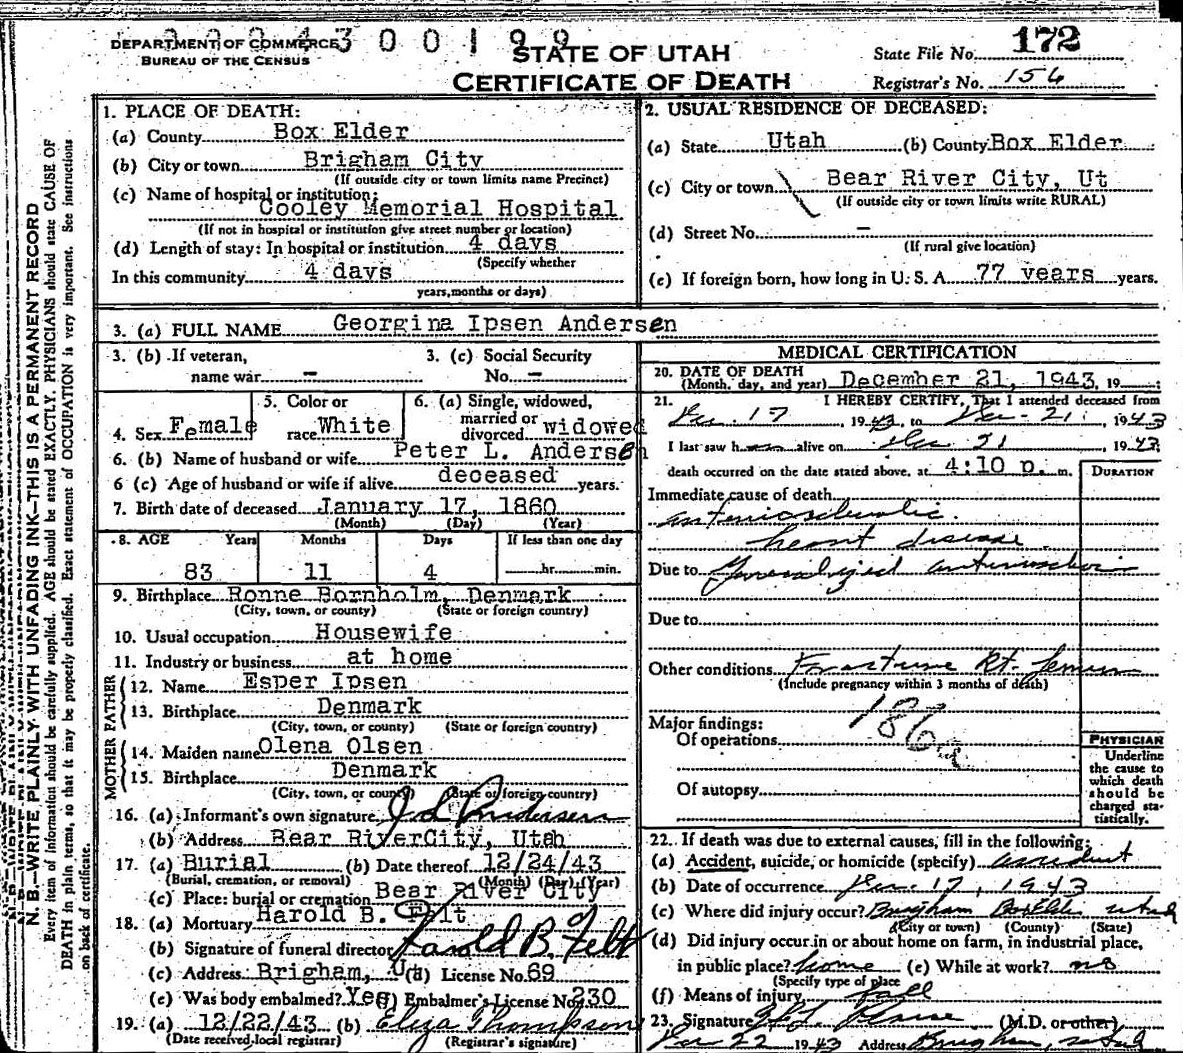 DEPARTMENT OF COMMERCE
BUREAU OF THE CENSUS
4 3 0 0 1 9 9
STATE OF UTAH
CERTIFICATE OF DEATH
State File No. 172
Registrar's No. 156
1. PLACE OF DEATH:
(a) County Box Elder
(b) City or town Brigham City
(If outside city or town limits name Precinct)
(c) Name of hospital or institution:
Cooley Memorial Hospital
(If not in hospital or institution give street number or location)
(d) Length of stay: In hospital or institution 4 days
(Specify whether
In this community 4 days
years, months or days)
2. USUAL RESIDENCE OF DECEASED:
(a) State Utah (b) County Box Elder
(c) City or town Bear River City, Ut
(If outside city or town limits write RURAL)
(d) Street No. -
(If rural give location)
(e) If foreign born, how long in U. S. A. 77 years years.
3. (a) FULL NAME Georgina Ipsen Andersen
3. (b) If veteran, name war -
3. (c) Social Security No. -
4. Sex Female
5. Color or race White
6. (a) Single, widowed, married or divorced widowed
6. (b) Name of husband or wife Peter L. Andersen
6 (c) Age of husband or wife if alive deceased years.
7. Birth date of deceased January 17, 1860
(Month) (Day) (Year)
8. AGE Years Months Days If less than one day
83 11 4 hr. min.
9. Birthplace Ronne Bornholm, Denmark
(City, town, or county) (State or foreign country)
10. Usual occupation Housewife
11. Industry or business at home
FATHER
12. Name Esper Ipsen
13. Birthplace Denmark
(City, town, or county) (State or foreign country)
MOTHER
14. Maiden name Olena Olsen
15. Birthplace Denmark
(City, town, or county) (State or foreign country)
16. (a) Informant's own signature Andersen
(b) Address Bear RiverCity, Utah
17. (a) Burial (b) Date thereof 12/24/43
(Burial, cremation, or removal) (Month) (Day) (Year)
(c) Place: burial or cremation Bear River City
18. (a) Mortuary Harold B. Felt
(b) Signature of funeral director Harold B. Felt
(c) Address Brigham, Ut (d) License No. 69
(e) Was body embalmed? Yes (f) Embalmer's License No. 230
19. (a) 12/22/43 (b) Eliza Thompson
(Date received local registrar) (Registrar's signature)
MEDICAL CERTIFICATION
20. DATE OF DEATH
(Month, day, and year) December 21, 1943, 19
21. I HEREBY CERTIFY, That I attended deceased from
Dec. 17, 1943, to Dec. 21, 1943
I last saw her alive on Dec 21 1943
death occurred on the date stated above, at 4:10 p. m.
DURATION
Immediate cause of death
arteriosclerotic
heart disease
Due to Generalized
Due to
Other conditions Fracture Rt. femur
(Include pregnancy within 3 months of death)
186a
Major findings:
Of operations
Of autopsy
PHYSICIAN
Underline
the cause to
which death
should be
charged sta-
tistically.
22. If death was due to external causes, fill in the following:
(a) Accident, suicide, or homicide (specify) accident
(b) Date of occurrence Dec. 17, 1943
(c) Where did injury occur? Brigham Box Elder Utah
(City or town) (County) (State)
(d) Did injury occur in or about home on farm, in industrial place,
in public place? home (e) While at work? no
(Specify type of place
(f) Means of injury fall
23. Signature (M.D. or other)
Dec 22 1943 Address Brigham, Utah
N. B.—WRITE PLAINLY WITH UNFADING INK—THIS IS A PERMANENT RECORD
Every item of information should be carefully supplied. AGE should be stated EXACTLY. PHYSICIANS should state CAUSE OF
DEATH in plain terms, so that it may be properly classified. Exact statement of OCCUPATION is very important. See instructions
on back of certificate.